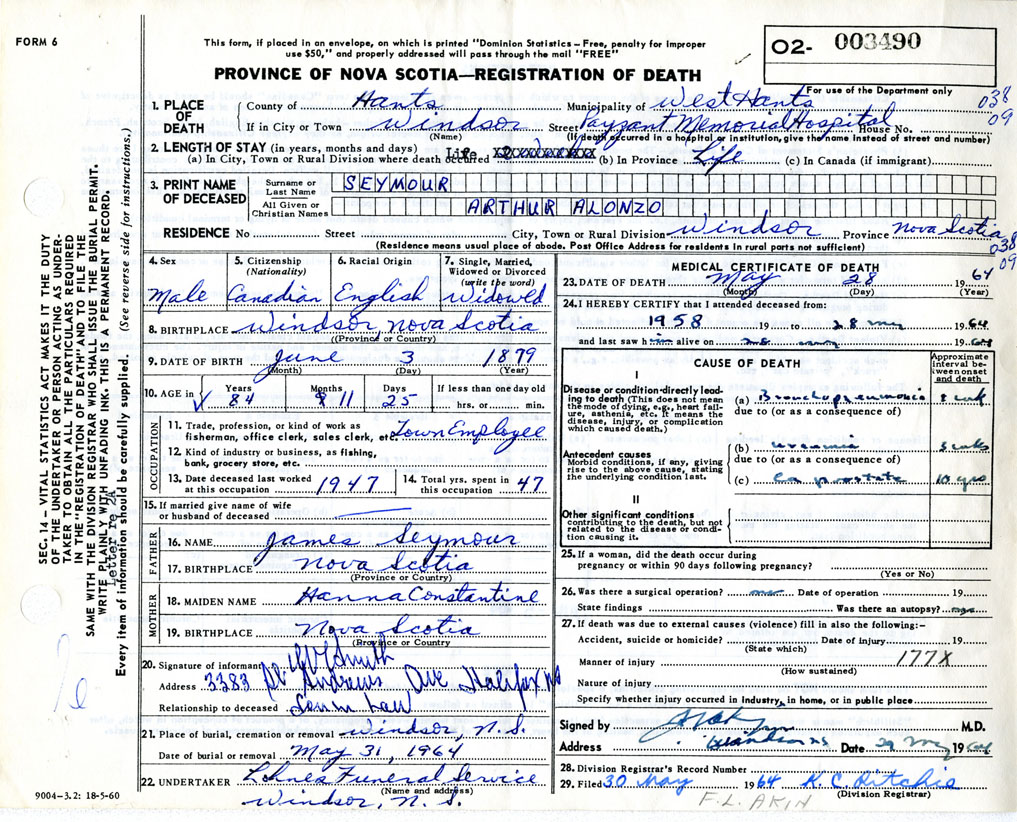 FORM 6
This form, if placed in an envelope, on which is printed "Dominion Statistics – Free, penalty for improper
use $50," and properly addressed will pass through the mail "FREE"
O2- 003490
PROVINCE OF NOVA SCOTIA—REGISTRATION OF DEATH
For use of the Department only
038
09
1. PLACE OF DEATH
County of Hants Municipality of West Hants
If in City or Town Windsor Street Payzant Memorial Hospital House No.
(Name) (If death occurred in a hospital or institution, give the name instead of street and number)
2. LENGTH OF STAY (in years, months and days)
(a) In City, Town or Rural Division where death occurred Life (b) In Province Life (c) In Canada (if immigrant)
3. PRINT NAME OF DECEASED
Surname or Last Name SEYMOUR
All Given or Christian Names ARTHUR ALONZO
RESIDENCE No Street City, Town or Rural Division Windsor Province Nova Scotia
(Residence means usual place of abode. Post Office Address for residents in rural parts not sufficient)
038
09
4. Sex Male
5. Citizenship (Nationality) Canadian
6. Racial Origin English
7. Single, Married, Widowed or Divorced (write the word) Widowed
8. BIRTHPLACE Windsor Nova Scotia
(Province or Country)
9. DATE OF BIRTH June 3 1879
(Month) (Day) (Year)
10. AGE in Years 84 Months 11 Days 25 If less than one day old hrs. or min.
OCCUPATION
11. Trade, profession, or kind of work as
fisherman, office clerk, sales clerk, etc. Town Employee
12. Kind of industry or business, as fishing,
bank, grocery store, etc.
13. Date deceased last worked
at this occupation 1947
14. Total yrs. spent in
this occupation 47
15. If married give name of wife
or husband of deceased
FATHER
16. NAME James Seymour
17. BIRTHPLACE Nova Scotia
(Province or Country)
MOTHER
18. MAIDEN NAME Hanna Constantine
19. BIRTHPLACE Nova Scotia
(Province or Country)
20. Signature of informant Smith
Address 3383 St Andrews Ave Halifax NS
Relationship to deceased Son in Law
21. Place of burial, cremation or removal Windsor, N.S.
Date of burial or removal May 31, 1964
22. UNDERTAKER Lohnes Funeral Service
(Name and address)
Windsor, N. S.
9004-3.2: 18-5-60
SEC. 14 – VITAL STATISTICS ACT MAKES IT THE DUTY
OF THE UNDERTAKER OR PERSON ACTING AS UNDER-
TAKER TO OBTAIN ALL THE PARTICULARS REQUIRED
IN THE "REGISTRATION OF DEATH" AND TO FILE THE
SAME WITH THE DIVISION REGISTRAR WHO SHALL ISSUE THE BURIAL PERMIT.
WRITE PLAINLY WITH UNFADING INK. THIS IS A PERMANENT RECORD.
Letter re 2A
Every item of information should be carefully supplied. (See reverse side for instructions.)
MEDICAL CERTIFICATE OF DEATH
23. DATE OF DEATH May 28 1964
(Month) (Day) (Year)
24. I HEREBY CERTIFY that I attended deceased from:
1958 19 to 28 May 1964
and last saw him alive on 1964
CAUSE OF DEATH
Approximate interval between onset and death
I
Disease or condition directly leading to death (This does not mean the mode of dying, e.g., heart failure, asthenia, etc. It means the disease, injury, or complication which caused death.)
(a) Bronchopneumonia
due to (or as a consequence of)
Antecedent causes
Morbid conditions, if any, giving rise to the above cause, stating the underlying condition last.
(b) uraemia
due to (or as a consequence of)
(c) Ca prostate 10 yrs
II
Other significant conditions
contributing to the death, but not related to the disease or condition causing it.
25. If a woman, did the death occur during
pregnancy or within 90 days following pregnancy?
(Yes or No)
26. Was there a surgical operation? Date of operation 19
State findings Was there an autopsy?
27. If death was due to external causes (violence) fill in also the following:-
Accident, suicide or homicide? Date of injury 19
(State which)
Manner of injury 177X
(How sustained)
Nature of injury
Specify whether injury occurred in industry, in home, or in public place
Signed by M.D.
Address Windsor NS Date 29 May 1964
28. Division Registrar's Record Number
29. Filed 30 May 1964 K. C. Ritchie
(Division Registrar)
F. L. AKIN